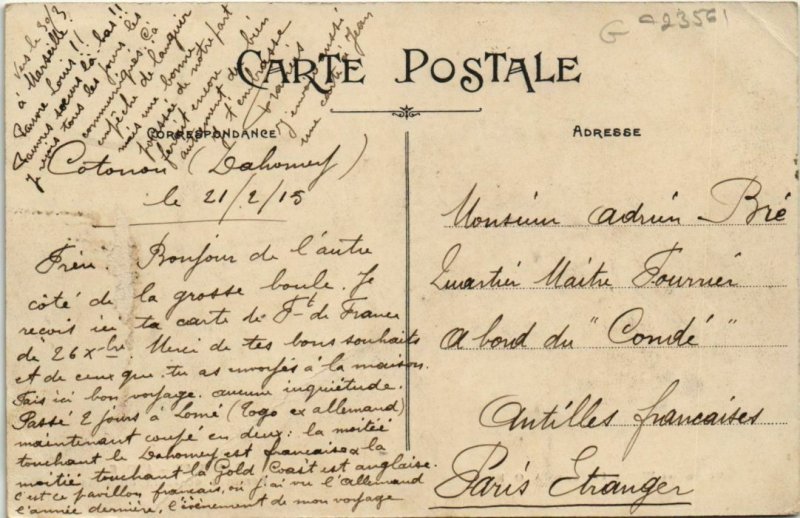 G 923561
CARTE POSTALE
CORRESPONDANCE
ADRESSE
vers le 30/3
à Marseille.
Pauvre Louis!!
Pauvres sœurs là bas!!
je vois tous les jours les
communiqués. Ça
empêche de languir
mais une bonne
poussée de notre part
ferait encore bien
autrement
t'embrasse
Francis
J'envoie aussi
une carte à Jean
Cotonou (Dahomey)
le 21/2/15
Frère. Bonjour de l'autre
côté de la grosse boule. Je
reçois ici ta carte de Ft de France
de 26 xbre. Merci de tes bons souhaits
et de ceux que tu as envoyés à la maison.
Fais ici bon voyage. aucune inquiétude.
Passé 2 jours à Lomé (Togo ex allemand)
maintenant coupé en deux: la moitié
touchant le Dahomey est française & la
moitié touchant la Gold Coast est anglaise.
c'est ce pavillon français, où j'ai vu l'Allemand
l'année dernière, l'évènement de mon voyage
Monsieur Adrien Bré
Quartier Maître Fourrier
A bord du "Condé"
Antilles françaises
Paris Etranger